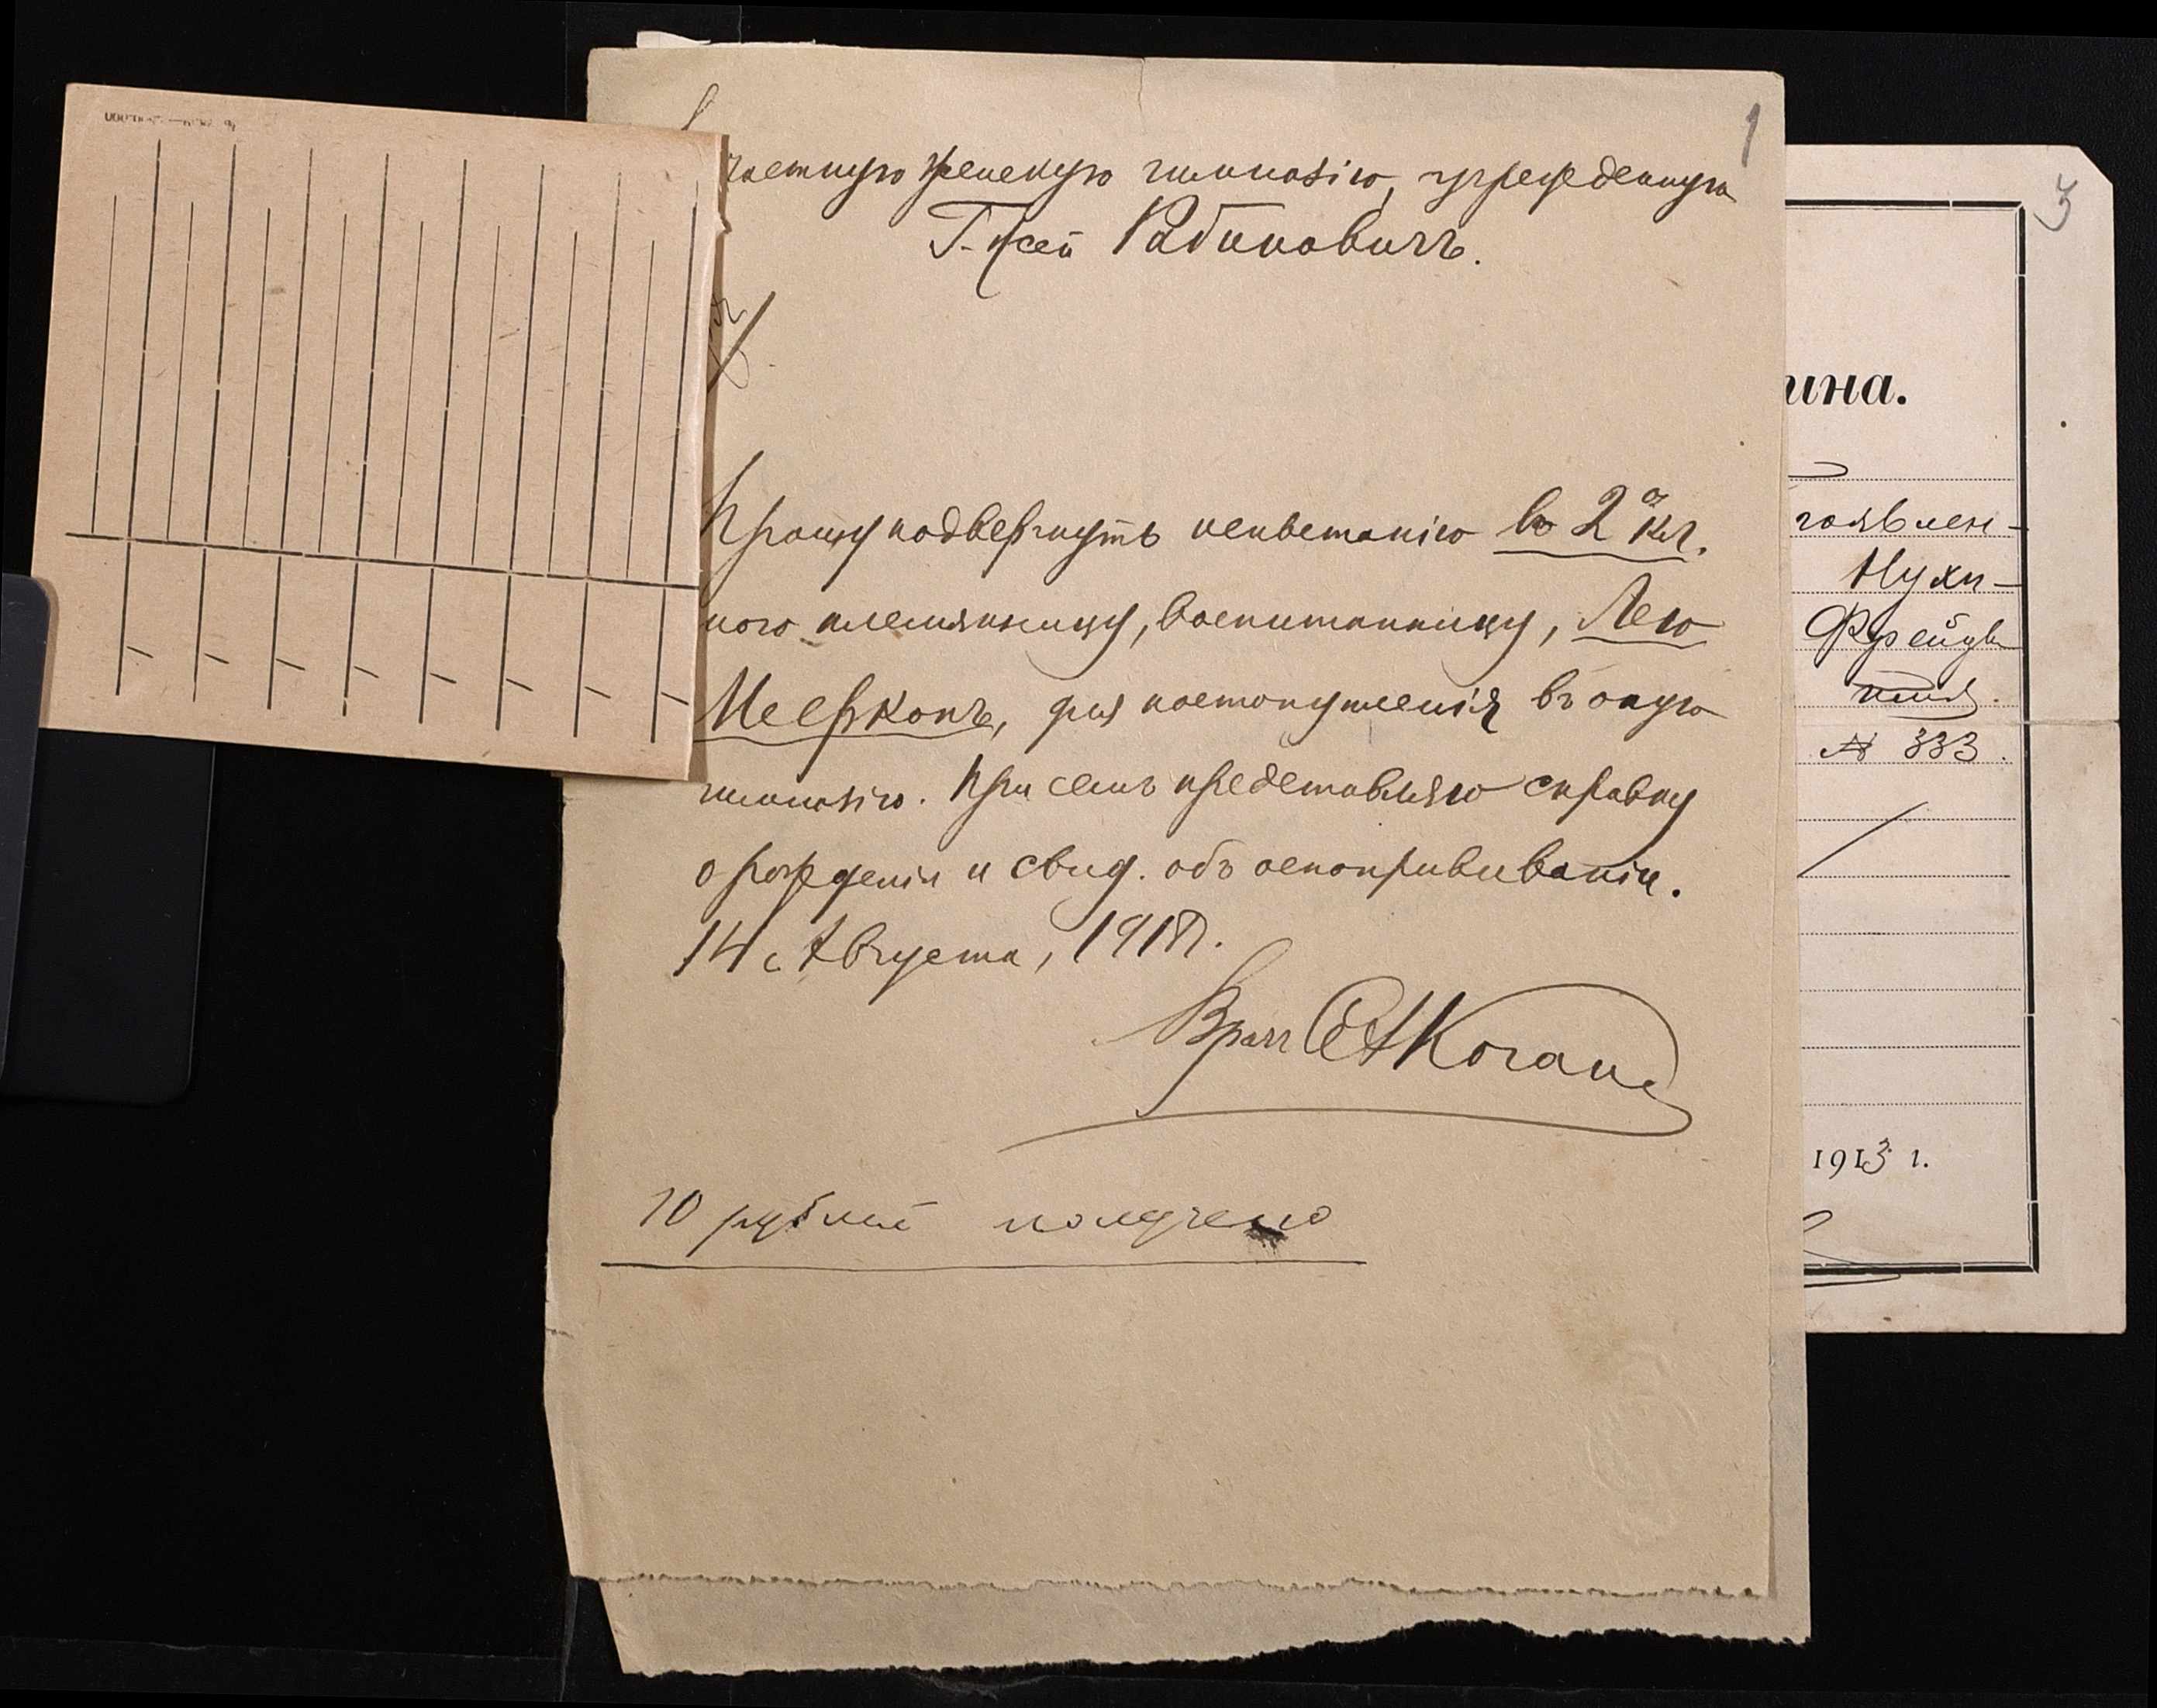 1
частную женскую гимназію, учрежденную
Г-жей Рабиновичъ.
Прошу подвергнуть испытанію во 2ой кл.
мою племянницу, воспитанницу, Лею
Меерковъ, для поступленія въ оную
гимназію. При семъ представляю справку
о рожденіи и свид. объ оспопрививаніи.
14 Августа, 191
Врачъ СА Коганъ
10 рублей получено
3
ина.
гоявлен-
Мухи-
№ 333.
1913 г.